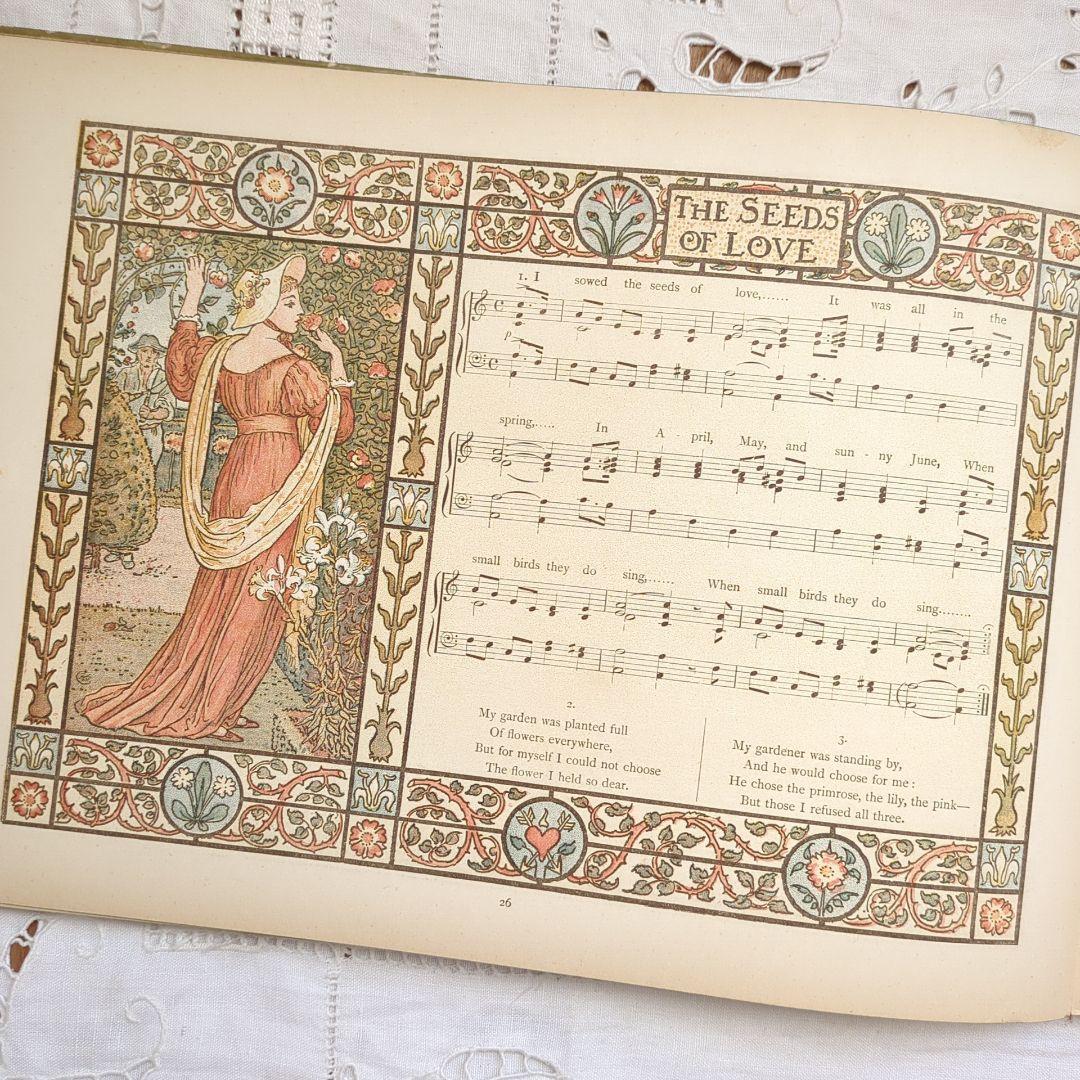 THE SEEDS
OF LOVE
1. I sowed the seeds of love,...... It was all in the
p
spring,..... In A - pril, May, and sun - ny June, When
small birds they do sing,...... When small birds they do sing........
2.
My garden was planted full
Of flowers everywhere,
But for myself I could not choose
The flower I held so dear.
3.
My gardener was standing by,
And he would choose for me:
He chose the primrose, the lily, the pink—
But those I refused all three.
26